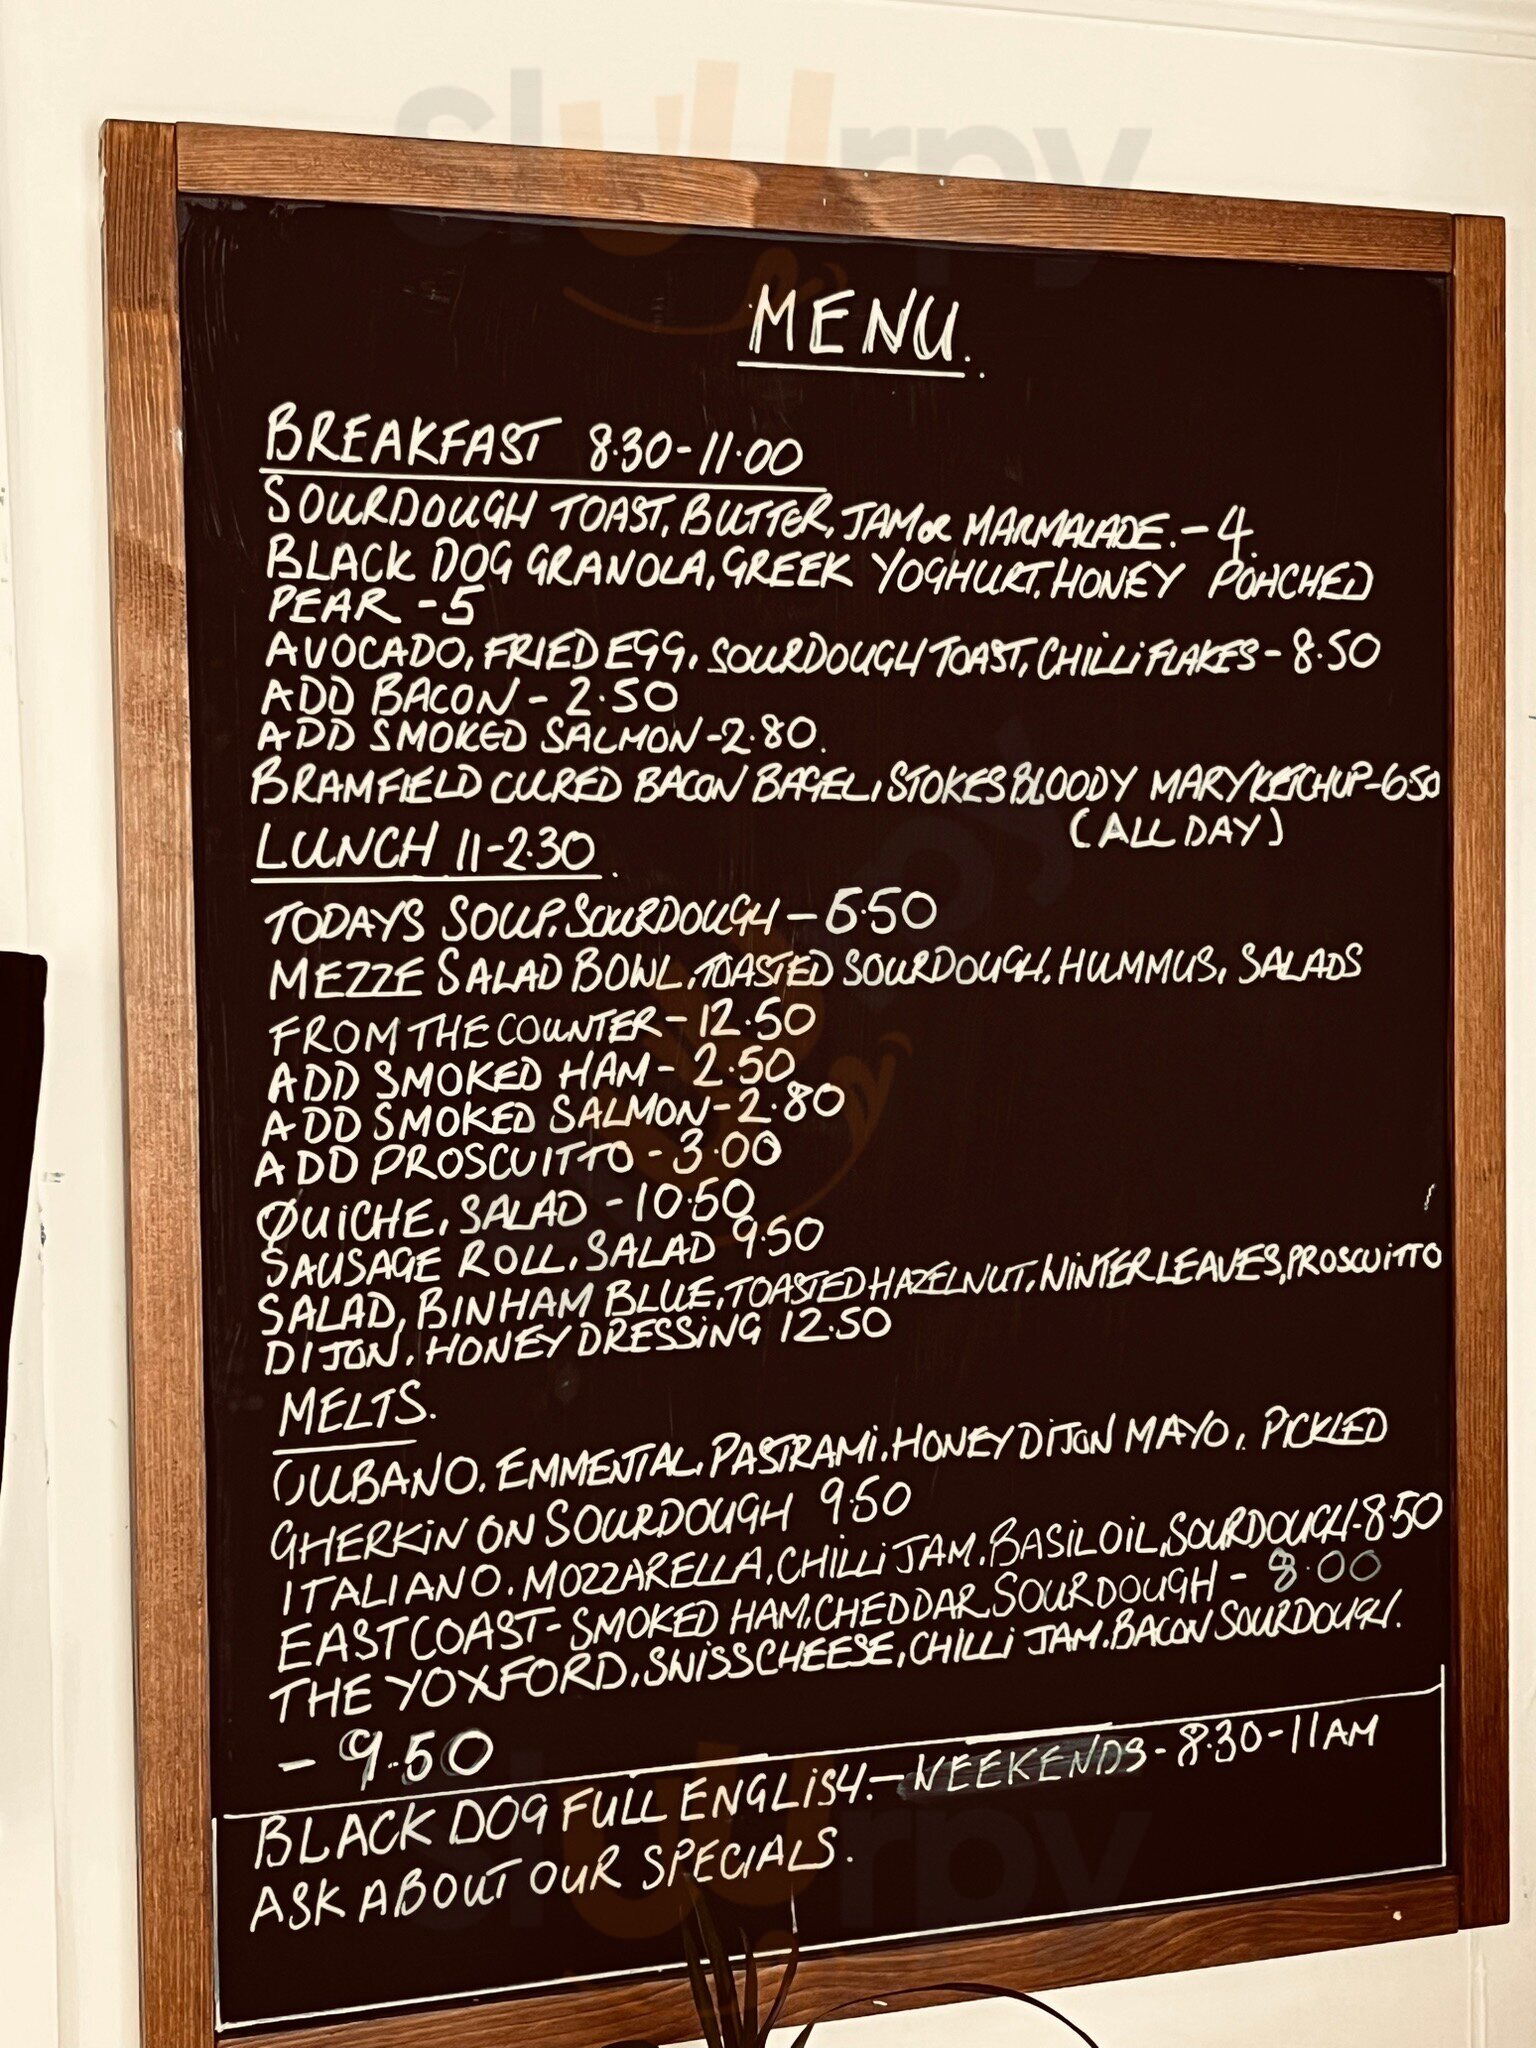 sluurpy
MENU.
BREAKFAST 8.30-11.00
SOURDOUGH TOAST, BUTTER, JAM or MARMALADE.-4.
BLACK DOG GRANOLA, GREEK YOGHURT, HONEY POHCHED
PEAR -5
AVOCADO, FRIED EGG, SOURDOUGH TOAST, CHILLI FLAKES - 8.50
ADD BACON - 2.50
ADD SMOKED SALMON -2.80.
BRAMFIELD CURED BACON BAGEL, STOKES BLOODY MARY KETCHUP-6.50
(ALL DAY)
LUNCH 11-2.30.
TODAYS SOUP, SOURDOUGH - 6.50
MEZZE SALAD BOWL, TOASTED SOURDOUGH, HUMMUS, SALADS
FROM THE COUNTER - 12.50
ADD SMOKED HAM - 2.50
ADD SMOKED SALMON - 2.80
ADD PROSCUITTO - 3.00
QUICHE, SALAD - 10.50
SAUSAGE ROLL, SALAD 9.50
SALAD, BINHAM BLUE, TOASTED HAZELNUT, WINTER LEAVES, PROSCUITTO
DIJON, HONEY DRESSING 12.50
MELTS.
CUBANO. EMMENTAL, PASTRAMI, HONEY DIJON MAYO, PICKLED
GHERKIN ON SOURDOUGH 9.50
ITALIANO. MOZZARELLA, CHILLI JAM. BASIL OIL, SOURDOUGH-8.50
EAST COAST- SMOKED HAM, CHEDDAR, SOURDOUGH - 8.00
THE YOXFORD, SWISS CHEESE, CHILLI JAM. BACON SOURDOUGH.
- 9.50
BLACK DOG FULL ENGLISH. - WEEKENDS - 8.30-11AM
ASK ABOUT OUR SPECIALS.
sluurpy